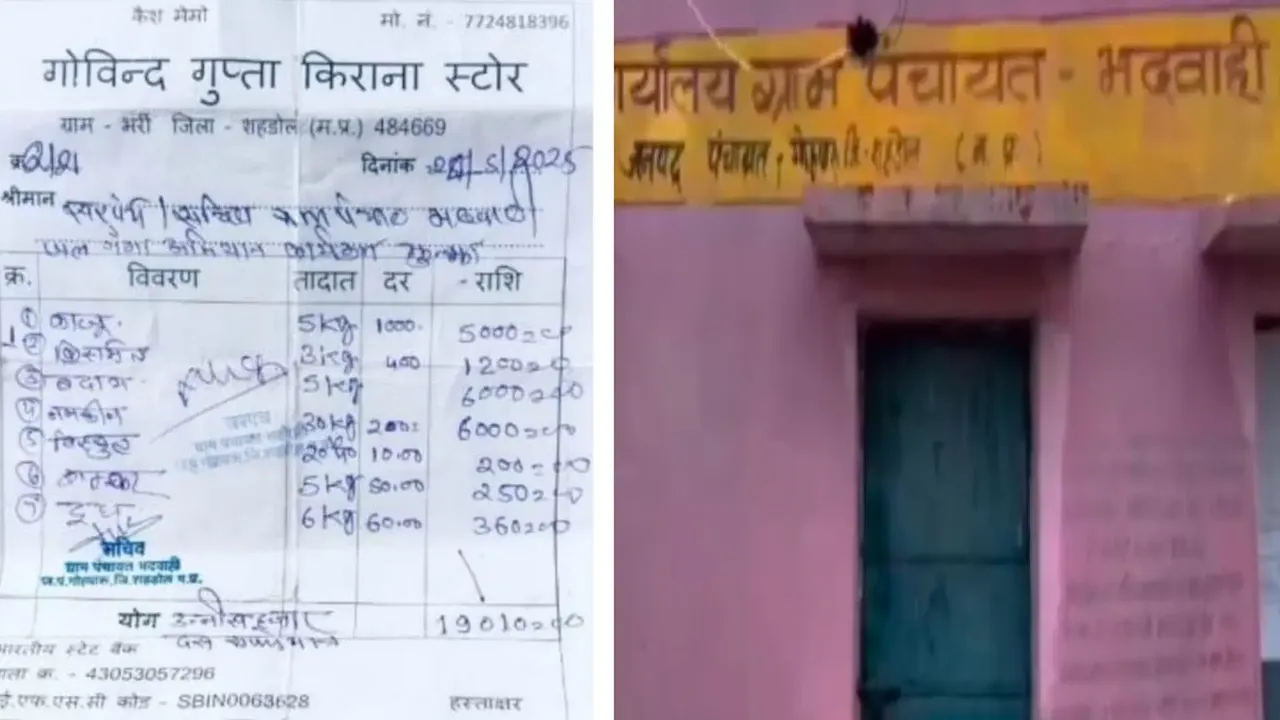 कैश मेमो मो. नं. - 7724818396
गोविन्द गुप्ता किराना स्टोर
ग्राम - भर्री जिला - शहडोल (म.प्र.) 484669
क्र. दिनांक /5/2025
श्रीमान सरपंच / सचिव ग्राम पंचायत भदवाही
जल गंगा अभियान कार्यक्रम
क्र. विवरण तादात दर - राशि
① काजू 5 kg 1000 5000=00
② किसमिस 3 kg 400 1200=00
③ बदाम 5 kg 6000=00
④ नमकीन 30 kg 200 6000=00
⑤ बिस्कुट 20 10.00 200=00
⑥ 5 kg 50.00 250=00
⑦ दूध 6 kg 60.00 360=00
सरपंच
ग्राम पंचायत
सचिव
ग्राम पंचायत भदवाही
ज.पं.गोहपारू,जि.शहडोल म.प्र.
योग उन्नीस हजार 19010=00
दस रूपये मात्र
भारतीय स्टेट बैंक
खाता क. - 43053057296
ई.एफ.एस.सी कोड - SBIN0063628 हस्ताक्षर
र्यालय ग्राम पंचायत - भदवाही
जनपद पंचायत, जि. शहडोल (म.प्र.)